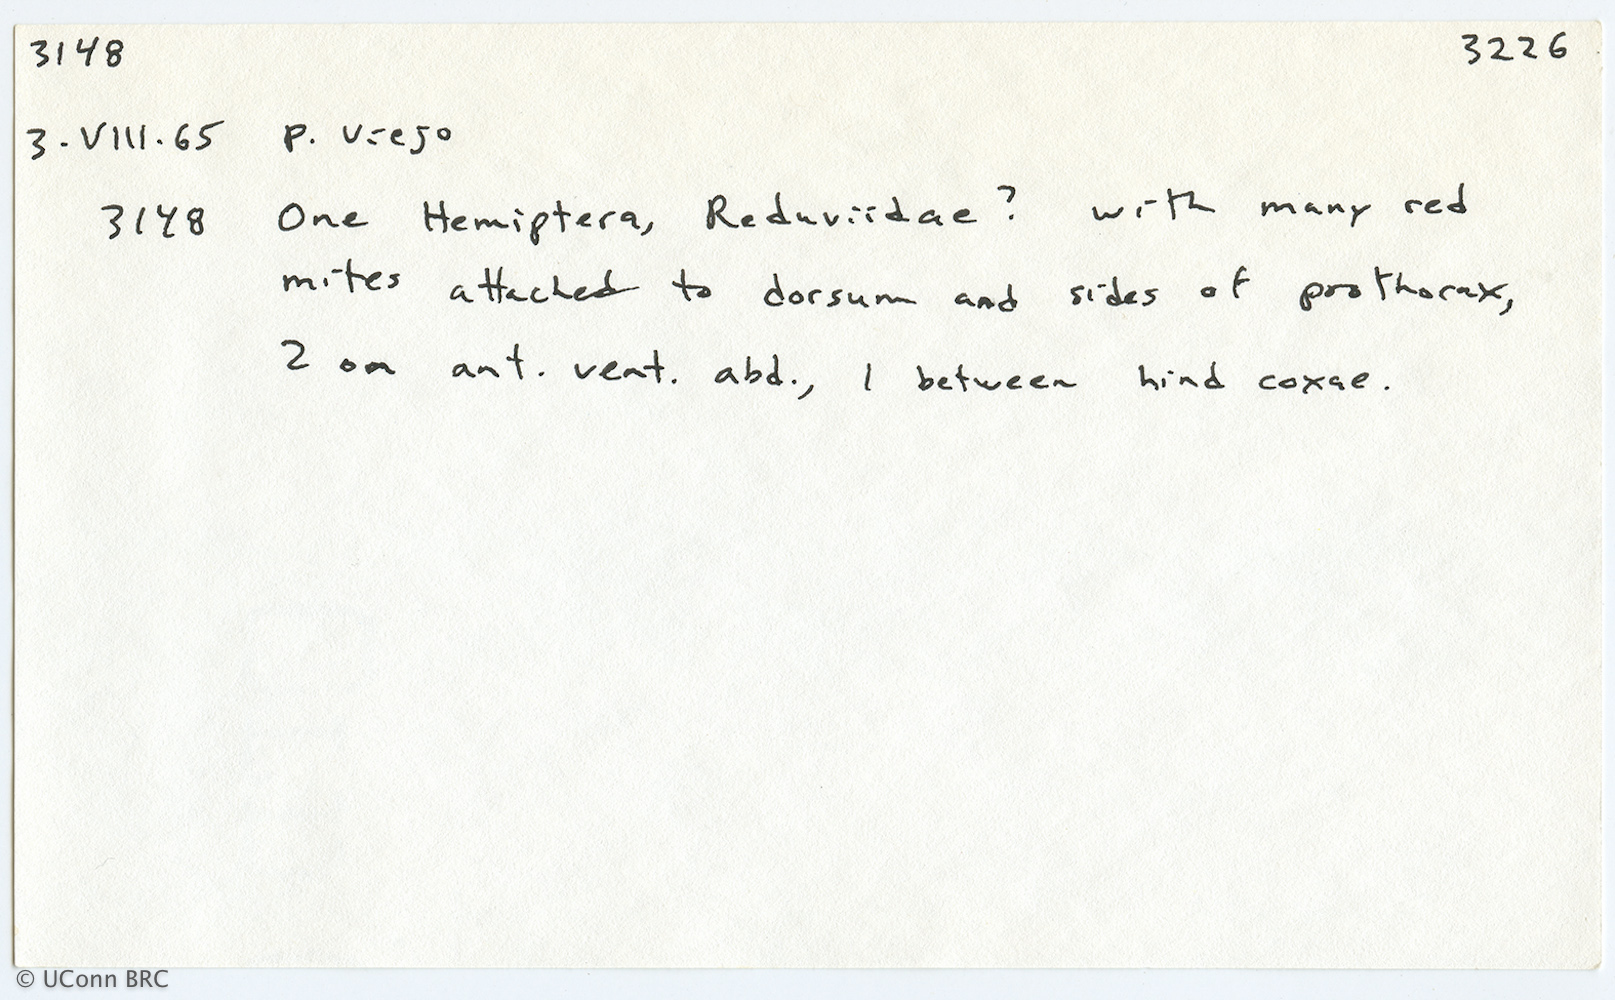 3148 3226
3.VIII.65 P. Viejo
3148 One Hemiptera, Reduviidae? with many red
mites attached to dorsum and sides of prothorax,
2 on ant. vent. abd., 1 between hind coxae.
© UConn BRC